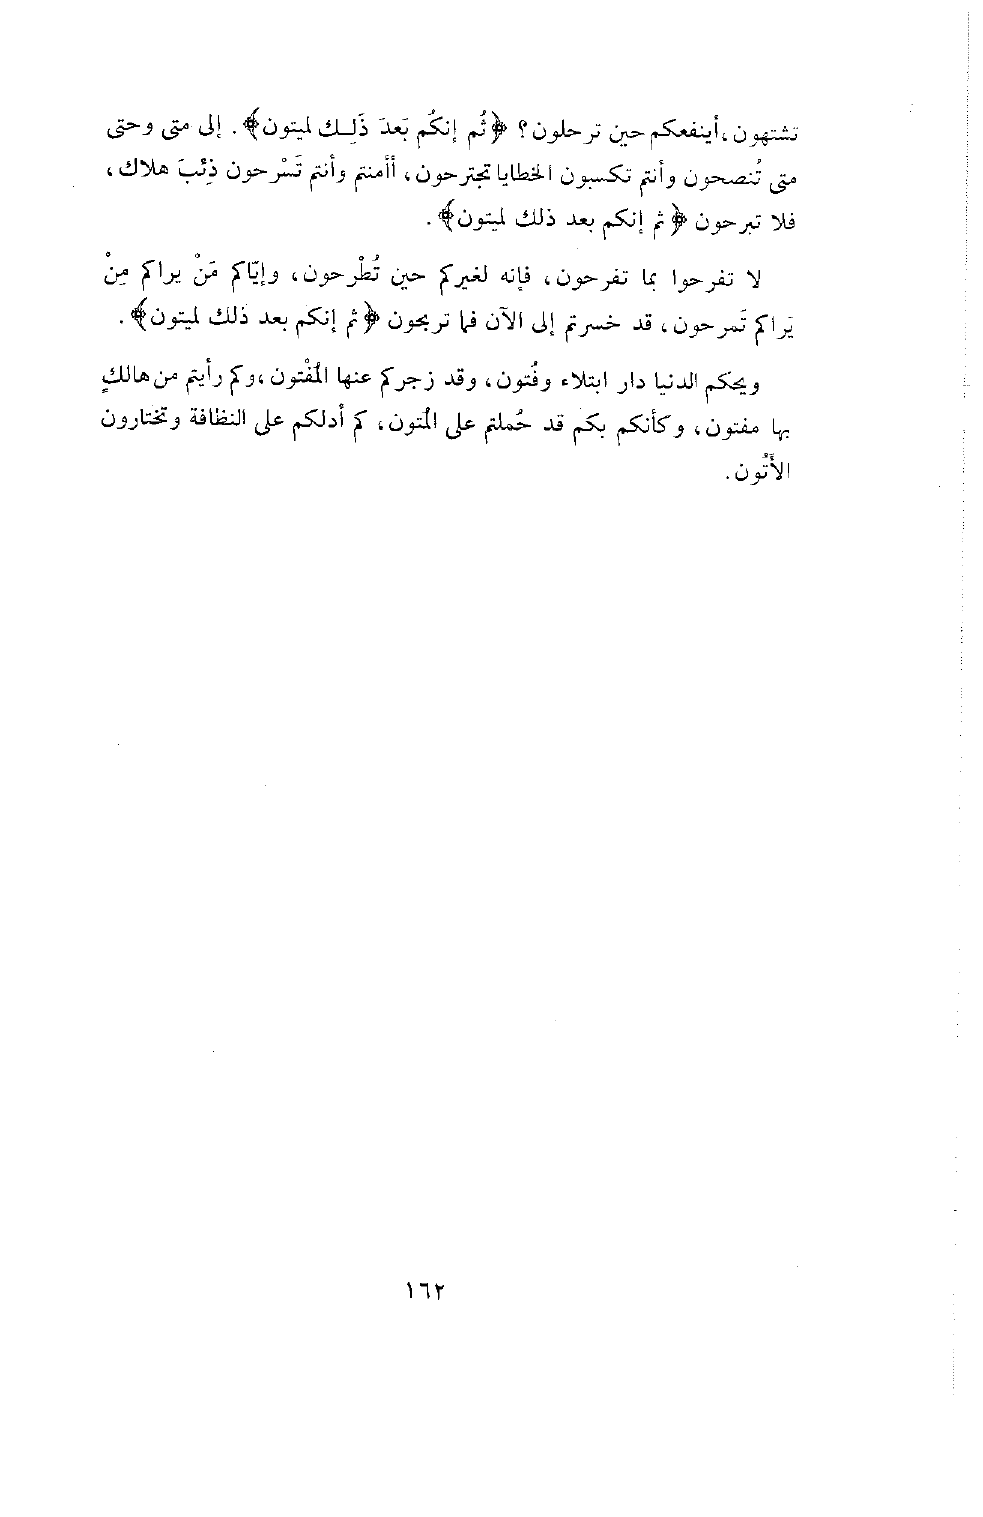 تشتهون، أينفعكم حين ترحلون؟ ﴿ثُم إنكُم بَعدَ ذَلِـك لميتون﴾. إلى متى وحتى
متى تُنصحون وأنتم تكسبون الخطايا تجترحون، أأمنتم وأنتم تَسْرحون ذِئبَ هلاك،
فلا تبرحون ﴿ثم إنكم بعد ذلك لميتون﴾.
لا تفرحوا بما تفرحون، فإنه لغيركم حين تُطْرحون، وإيّاكم مَنْ يراكم مِنْ
يَراكم تَمرحون، قد خسرتم إلى الآن فما تربحون ﴿ثم إنكم بعد ذلك لميتون﴾.
ويحكم الدنيا دار ابتلاء وفُتون، وقد زجركم عنها المفْتون، وكم رأيتم من هالكٍ
بها مفتون، وكأنكم بكم قد حُملتم على المُتون، كم أدلكم على النظافة وتختارون
الأَتُون.
١٦٢